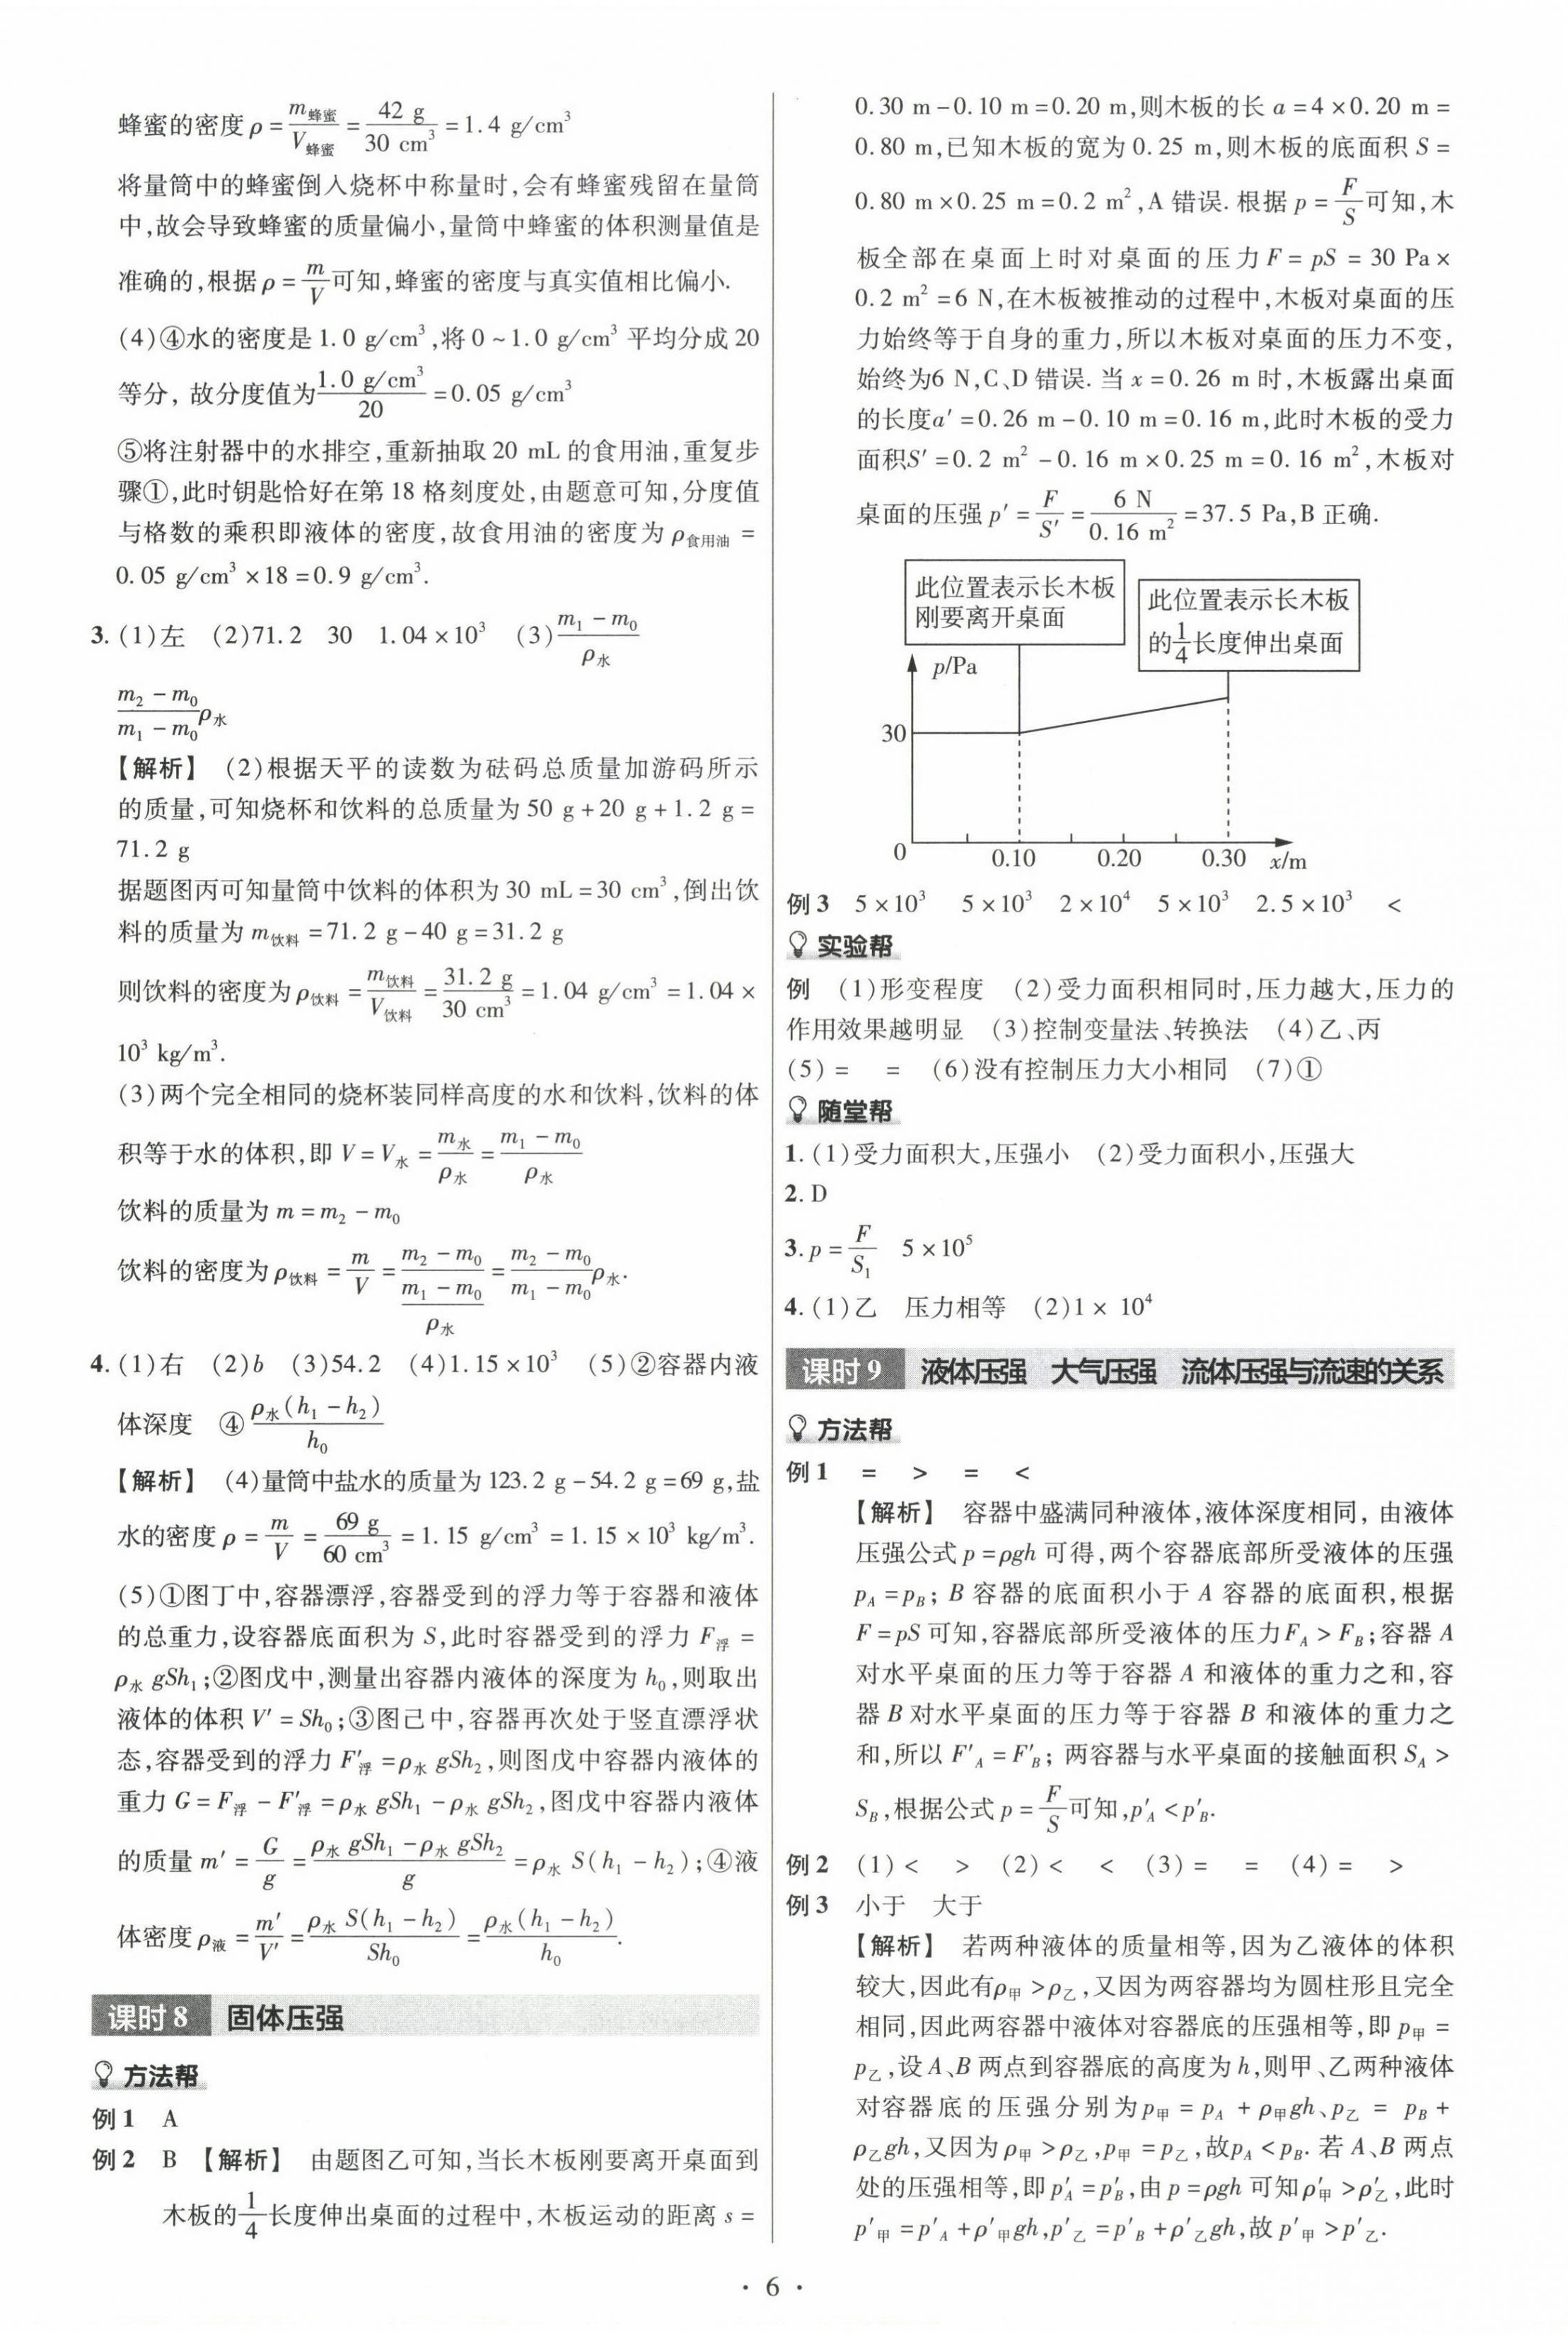 蜂蜜的密度ρ=m蜂蜜/V蜂蜜=42 g/30 cm³=1.4 g/cm³
将量筒中的蜂蜜倒入烧杯中称量时,会有蜂蜜残留在量筒
中,故会导致蜂蜜的质量偏小,量筒中蜂蜜的体积测量值是
准确的,根据ρ=m/V可知,蜂蜜的密度与真实值相比偏小.
(4)④水的密度是1.0 g/cm³,将0~1.0 g/cm³平均分成20
等分,故分度值为1.0 g/cm³/20=0.05 g/cm³
⑤将注射器中的水排空,重新抽取20 mL的食用油,重复步
骤①,此时钥匙恰好在第18格刻度处,由题意可知,分度值
与格数的乘积即液体的密度,故食用油的密度为ρ食用油=
0.05 g/cm³×18=0.9 g/cm³.
3.(1)左 (2)71.2 30 1.04×10³ (3)(m₁-m₀)/ρ水
(m₂-m₀)/(m₁-m₀)ρ水
【解析】 (2)根据天平的读数为砝码总质量加游码所示
的质量,可知烧杯和饮料的总质量为50 g+20 g+1.2 g=
71.2 g
据题图丙可知量筒中饮料的体积为30 mL=30 cm³,倒出饮
料的质量为m饮料=71.2 g-40 g=31.2 g
则饮料的密度为ρ饮料=m饮料/V饮料=31.2 g/30 cm³=1.04 g/cm³=1.04×
10³ kg/m³.
(3)两个完全相同的烧杯装同样高度的水和饮料,饮料的体
积等于水的体积,即V=V水=m水/ρ水=(m₁-m₀)/ρ水
饮料的质量为m=m₂-m₀
饮料的密度为ρ饮料=m/V=(m₂-m₀)/((m₁-m₀)/ρ水)=(m₂-m₀)/(m₁-m₀)ρ水.
4.(1)右 (2)b (3)54.2 (4)1.15×10³ (5)②容器内液
体深度 ④ρ水(h₁-h₂)/h₀
【解析】 (4)量筒中盐水的质量为123.2 g-54.2 g=69 g,盐
水的密度ρ=m/V=69 g/60 cm³=1.15 g/cm³=1.15×10³ kg/m³.
(5)①图丁中,容器漂浮,容器受到的浮力等于容器和液体
的总重力,设容器底面积为S,此时容器受到的浮力F浮=
ρ水gSh₁;②图戊中,测量出容器内液体的深度为h₀,则取出
液体的体积V′=Sh₀;③图己中,容器再次处于竖直漂浮状
态,容器受到的浮力F′浮=ρ水gSh₂,则图戊中容器内液体的
重力G=F浮-F′浮=ρ水gSh₁-ρ水gSh₂,图戊中容器内液体
的质量m′=G/g=(ρ水gSh₁-ρ水gSh₂)/g=ρ水S(h₁-h₂);④液
体密度ρ液=m′/V′=ρ水S(h₁-h₂)/Sh₀=ρ水(h₁-h₂)/h₀.
课时8 固体压强
方法帮
例1 A
例2 B 【解析】 由题图乙可知,当长木板刚要离开桌面到
木板的1/4长度伸出桌面的过程中,木板运动的距离s=
0.30 m-0.10 m=0.20 m,则木板的长a=4×0.20 m=
0.80 m,已知木板的宽为0.25 m,则木板的底面积S=
0.80 m×0.25 m=0.2 m²,A错误.根据p=F/S可知,木
板全部在桌面上时对桌面的压力F=pS=30 Pa×
0.2 m²=6 N,在木板被推动的过程中,木板对桌面的压
力始终等于自身的重力,所以木板对桌面的压力不变,
始终为6 N,C、D错误.当x=0.26 m时,木板露出桌面
的长度a′=0.26 m-0.10 m=0.16 m,此时木板的受力
面积S′=0.2 m²-0.16 m×0.25 m=0.16 m²,木板对
桌面的压强p′=F/S′=6 N/0.16 m²=37.5 Pa,B正确.
此位置表示长木板
刚要离开桌面
此位置表示长木板
的1/4长度伸出桌面
p/Pa
30
0 0.10 0.20 0.30 x/m
例3 5×10³ 5×10³ 2×10⁴ 5×10³ 2.5×10³ <
实验帮
例 (1)形变程度 (2)受力面积相同时,压力越大,压力的
作用效果越明显 (3)控制变量法、转换法 (4)乙、丙
(5)= = (6)没有控制压力大小相同 (7)①
随堂帮
1.(1)受力面积大,压强小 (2)受力面积小,压强大
2.D
3.p=F/S₁ 5×10⁵
4.(1)乙 压力相等 (2)1×10⁴
课时9 液体压强 大气压强 流体压强与流速的关系
方法帮
例1 = > = <
【解析】 容器中盛满同种液体,液体深度相同,由液体
压强公式p=ρgh可得,两个容器底部所受液体的压强
pA=pB;B容器的底面积小于A容器的底面积,根据
F=pS可知,容器底部所受液体的压力FA>FB;容器A
对水平桌面的压力等于容器A和液体的重力之和,容
器B对水平桌面的压力等于容器B和液体的重力之
和,所以F′A=F′B;两容器与水平桌面的接触面积SA>
SB,根据公式p=F/S可知,p′A<p′B.
例2 (1)< > (2)< < (3)= = (4)= >
例3 小于 大于
【解析】 若两种液体的质量相等,因为乙液体的体积
较大,因此有ρ甲>ρ乙,又因为两容器均为圆柱形且完全
相同,因此两容器中液体对容器底的压强相等,即p甲=
p乙,设A、B两点到容器底的高度为h,则甲、乙两种液体
对容器底的压强分别为p甲=pA+ρ甲gh、p乙=pB+
ρ乙gh,又因为ρ甲>ρ乙,p甲=p乙,故pA<pB.若A、B两点
处的压强相等,即p′A=p′B,由p=ρgh可知ρ′甲>ρ′乙,此时
p′甲=p′A+ρ′甲gh,p′乙=p′B+ρ′乙gh,故p′甲>p′乙.
· 6 ·